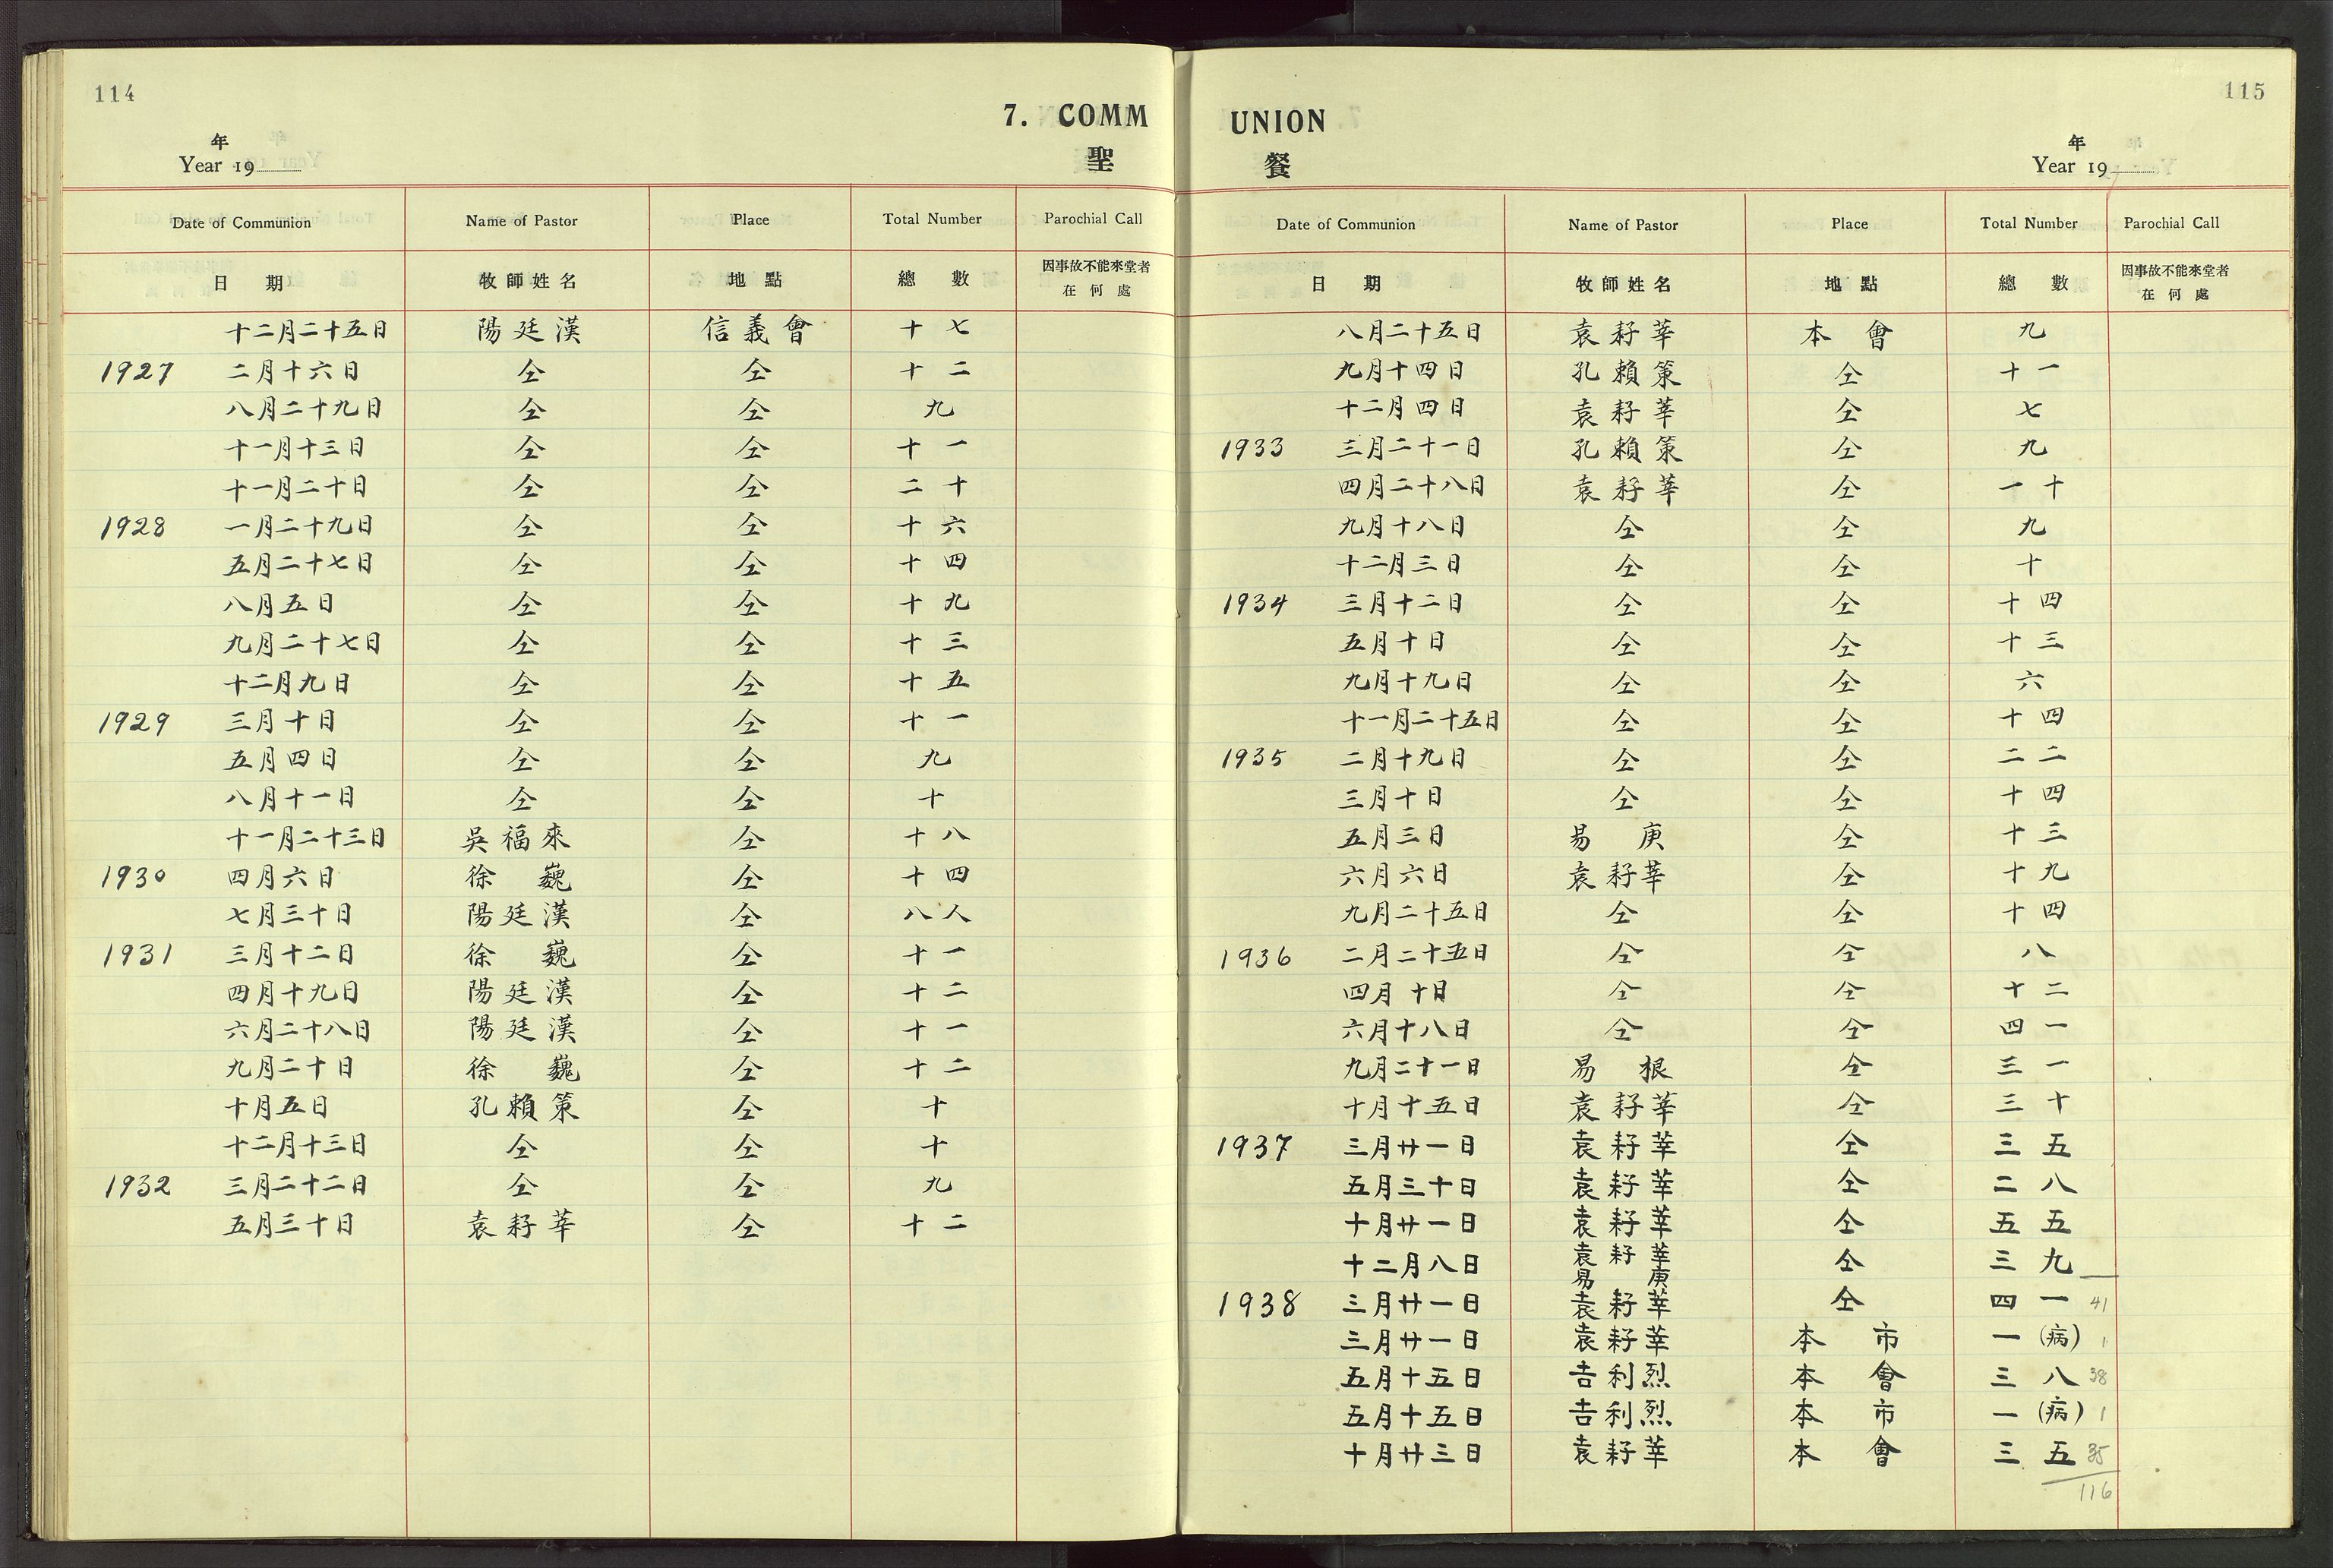 114
7. COMM
年
Year 19
聖
Date of Communion Name of Pastor Place Total Number Parochial Call
日 期 牧師姓名 地點 總數 因事故不能來堂者在何處
十二月二十五日 陽廷漢 信義會 十七
1927 二月十六日 仝 仝 十二
八月二十九日 仝 仝 九
十一月十三日 仝 仝 十一
十一月二十日 仝 仝 二十
1928 一月二十九日 仝 仝 十六
五月二十七日 仝 仝 十四
八月五日 仝 仝 十九
九月二十七日 仝 仝 十三
十二月九日 仝 仝 十五
1929 三月十日 仝 仝 十一
五月四日 仝 仝 九
八月十一日 仝 仝 十
十一月二十三日 吳福來 仝 十八
1930 四月六日 徐巍 仝 十四
七月三十日 陽廷漢 仝 八人
1931 三月十二日 徐巍 仝 十一
四月十九日 陽廷漢 仝 十二
六月二十八日 陽廷漢 仝 十一
九月二十日 徐巍 仝 十二
十月五日 孔賴策 仝 十
十二月十三日 仝 仝 十
1932 三月二十二日 仝 仝 九
五月三十日 袁耔莘 仝 十二
115
UNION
年
Year 19
餐
Date of Communion Name of Pastor Place Total Number Parochial Call
日 期 牧師姓名 地點 總數 因事故不能來堂者在何處
八月二十五日 袁耔莘 本會 九
九月十四日 孔賴策 仝 十一
十二月四日 袁耔莘 仝 七
1933 三月二十一日 孔賴策 仝 九
四月二十八日 袁耔莘 仝 一十
九月十八日 仝 仝 九
十二月三日 仝 仝 十
1934 三月十二日 仝 仝 十四
五月十日 仝 仝 十三
九月十九日 仝 仝 六
十一月二十五日 仝 仝 十四
1935 二月十九日 仝 仝 二二
三月十日 仝 仝 十四
五月三日 易庚 仝 十三
六月六日 袁耔莘 仝 十九
九月二十五日 仝 仝 十四
1936 二月二十五日 仝 仝 八
四月十日 仝 仝 十二
六月十八日 仝 仝 四一
九月二十一日 易根 仝 三一
十月十五日 袁耔莘 仝 三十
1937 三月廿一日 袁耔莘 仝 三五
五月三十日 袁耔莘 仝 二八
十月廿一日 袁耔莘 仝 五五
十二月八日 袁耔莘 易庚 仝 三九
1938 三月廿一日 袁耔莘 仝 四一 41
三月廿一日 袁耔莘 本市 一(病) 1
五月十五日 吉利烈 本會 三八 38
五月十五日 吉利烈 本市 一(病) 1
十月廿三日 袁耔莘 本會 三五 35
116